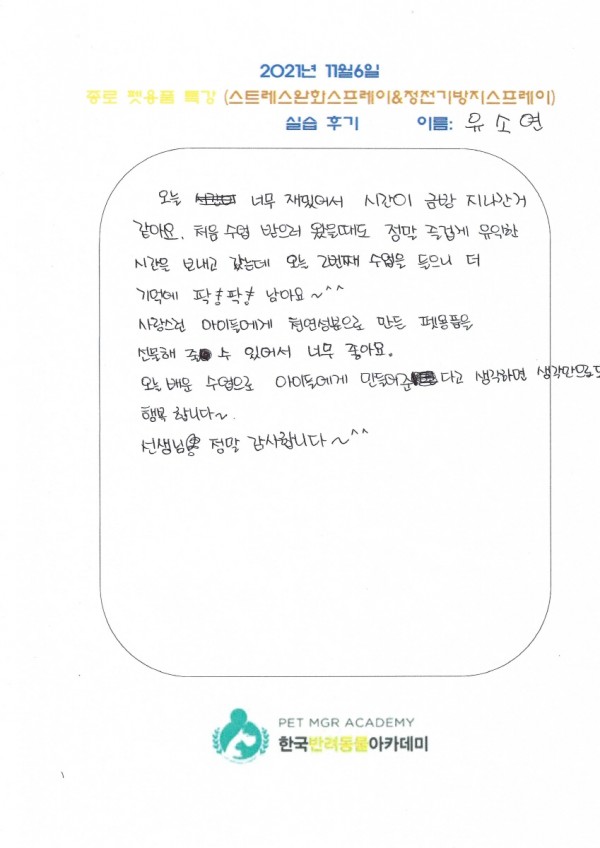 2021년 11월6일
종로 펫용품 특강 (스트레스완화스프레이&정전기방지스프레이)
실습 후기 이름: 유소연
오늘 너무 재밌어서 시간이 금방 지나간거
같아요. 처음 수업 받으러 왔을때도 정말 즐겁게 유익한
시간을 보내고 갔는데 오늘 2번째 수업을 들으니 더
기억에 팍!팍! 남아요~^^
사랑스런 아이들에게 천연성분으로 만든 펫용품을
선물해 줄 수 있어서 너무 좋아요.
오늘 배운 수업으로 아이들에게 만들어준다고 생각하면 생각만으로도
행복 합니다~.
선생님 정말 감사합니다~^^
PET MGR ACADEMY
한국반려동물아카데미